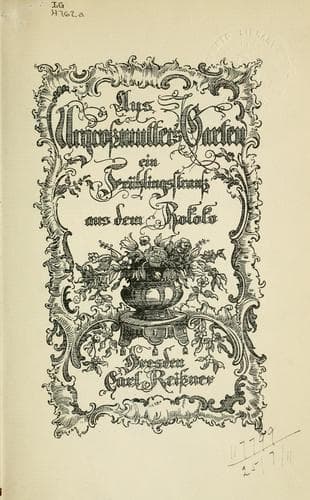 LG
H762a
Aus
Urgroßmutters Garten
ein
Frühlingsstrauß
aus dem Rokoko
Dresden
Carl Reißner
117799
25/7/11